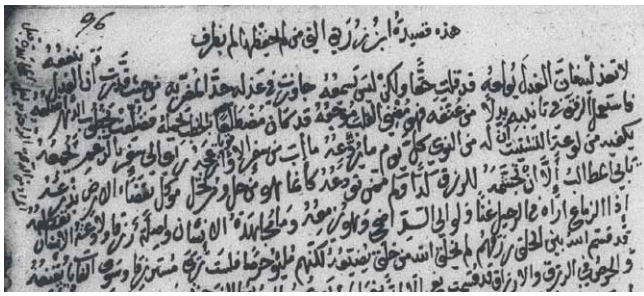 96
هذه قصيدة ابن زريق التي من لم يحفظها لم يظرف
لا تعذليه فان العذل يولعه قد قلت حقا ولكن ليس يسمعه جاوزت في عذله حدا اضر به من حيث قدرت ان العذل ينفعه
فاستعمل الرفق في تانيبه بدلا من عنفه فهو مضنى القلب موجعه قد كان مضطلعا بالخطب يحمله فضلعت بخطوب الدهر اضلعه
يكفيه من لوعة التشتيت ان له من النوى كل يوم ما يروعه ما اب من سفر الا وازعجه راي الى سفر بالعزم يجمعه
تابى المطالب الا ان تجشمه للرزق كدا وكم ممن يودعه كانما هو من حل ومرتحل موكل بفضاء الارض يذرعه
اذا الزماع اراه في الرحيل غنا ولو الى السد اضحى وهو يزمعه وما مجاهدة الانسان واصلة رزقا ولا دعة الانسان تقطعه
قد قسم الله بين الخلق رزقهم لم يخلق الله من خلق يضيعه لكنهم ملئوا حرصا فلست ترى مسترزقا وسوى الغايات يقنعه
والحرص في الرزق والارزاق قد قسمت